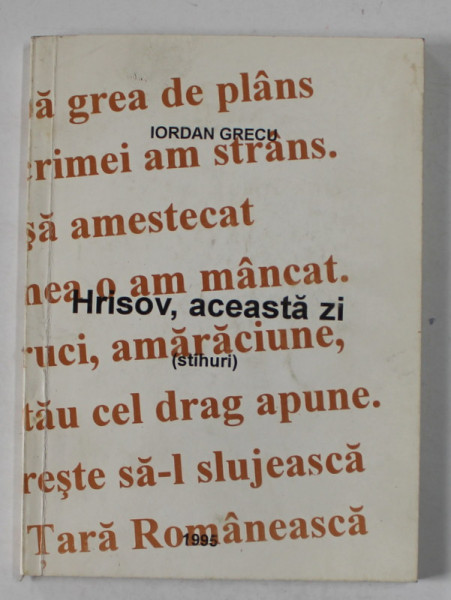 ă grea de plâns
IORDAN GRECU
crimei am strâns.
şă amestecat
nea o am mâncat.
Hrisov, această zi
ruci, amărăciune,
(stihuri)
tău cel drag apune.
reşte să-l slujească
Ţară Românească
1995